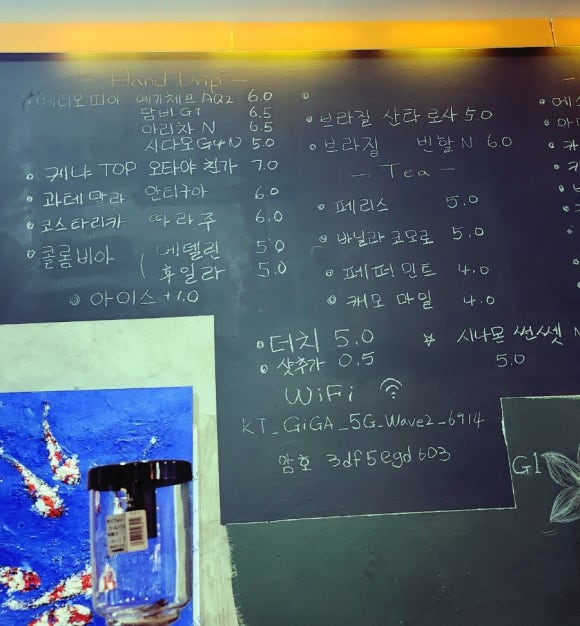 - Hand Drip -
에티오피아 예가체프 AQ2 6.0
담비 G1 6.5
아리차 N 6.5
시다모 G4 N 5.0
케냐 TOP 오타야 친가 7.0
과테말라 안티구아 6.0
코스타리카 따라주 6.0
콜롬비아 ( 메델린 5.0
후일라 5.0
아이스 +1.0
브라질 산타로사 5.0
브라질 빈할 N 6.0
- Tea -
페리스 5.0
바닐라 코모로 5.0
페퍼민트 4.0
캐모마일 4.0
더치 5.0
샷추가 0.5
☆ 시나몬 썬쎗
5.0
WiFi
KT_GiGA_5G_Wave2_6914
암호 3df5egd603
G1